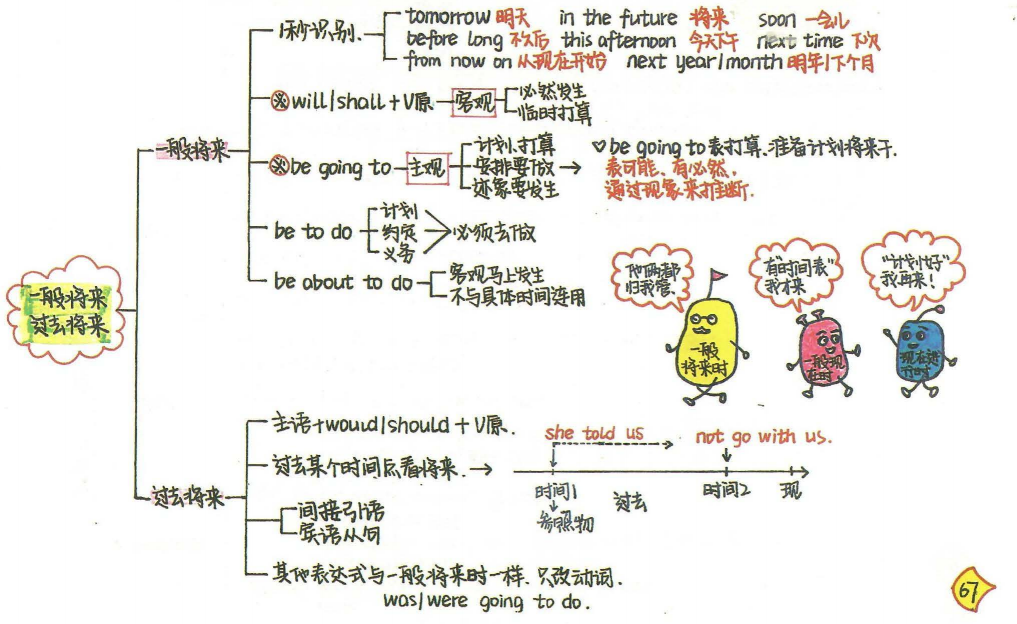 一般将来
过去将来
一般将来
1秒识别.
tomorrow 明天 in the future 将来 soon 一会儿
before long 不久后 this afternoon 今天下午 next time 下次
from now on 从现在开始 next year/month 明年/下个月
※will/shall+V原
客观
必然发生
临时打算
※be going to
主观
计划、打算
安排要做
迹象要发生
♡be going to表打算、准备计划将来干.
表可能、有必然,
通过现象来推断.
be to do
计划
约定
义务
必须去做
be about to do
客观马上发生
不与具体时间连用
他俩都
归我管、
一般
将来时
有"时间表"
我才来
一般现
在时
"计划好"
我再来!
现在进
行时
过去将来
主语+would/should+V原.
过去某个时间点看将来.
she told us
not go with us.
时间1
过去
时间2
现
参照物
间接引语
宾语从句
其他表达式与一般将来时一样、只改动词.
was/were going to do.
67